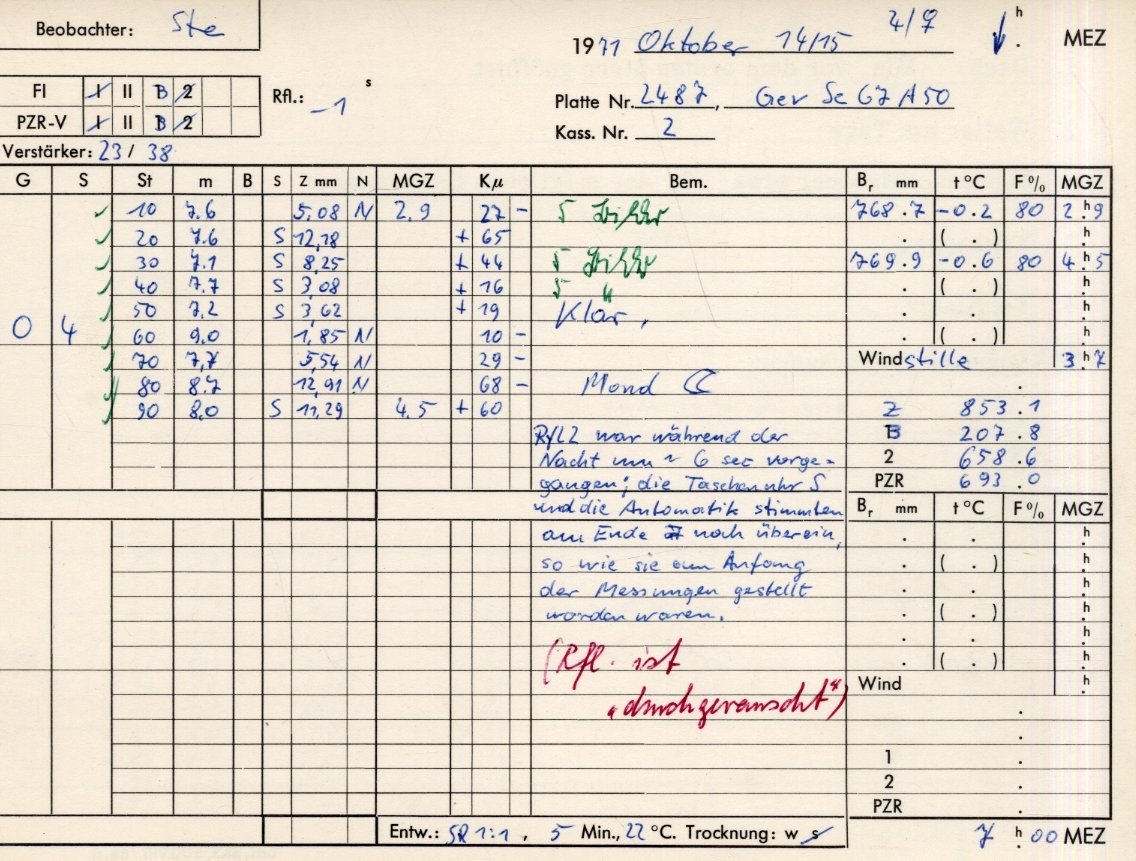 Beobachter: Ste
1971 Oktober 14/15 h MEZ
FI I II B 2 Rfl.: -1 s
PZR-V I II B 2
Platte Nr. 2487, Gev Sc G7 A50
Kass. Nr. 2
Verstärker: 23 / 38
G S St m B S Z mm N MGZ Kμ Bem. Br mm t °C F % MGZ
✓ 10 7.6 5,08 N 2,9 27 - 5 Bilder 768.7 -0.2 80 2 h 9
✓ 20 7.6 S 12,18 + 65 . ( . ) h
✓ 30 7.1 S 8,25 + 44 5 Bilder 769.9 -0.6 80 4 h 5
✓ 40 7.7 S 3,08 + 16 5 " . ( . ) h
✓ 50 7,2 S 3,62 + 19 Klar, . . h
0 4 ✓ 60 9,0 1,85 N 10 - . ( . ) h
✓ 70 7,7 5,54 N 29 - Windstille 3 h 7
✓ 80 8.7 12,91 N 68 - Mond ☾ .
✓ 90 8,0 S 11,29 4,5 + 60 Z 853.1
RflZ war während der B 207.8
Nacht um ~ 6 sec vorge- 2 658.6
gangen; die Taschenuhr S PZR 693.0
und die Automatik stimmten Br mm t °C F % MGZ
am Ende noch überein, . . h
so wie sie am Anfang . ( . ) h
der Messungen gestellt . . h
worden waren. . ( . ) h
. . h
(Rfl. ist . ( . ) h
Wind h
"durchgerauscht")
1 .
2 .
PZR .
Entw.: 1:1, 5 Min., 22 °C. Trocknung: w s 7 h 00 MEZ